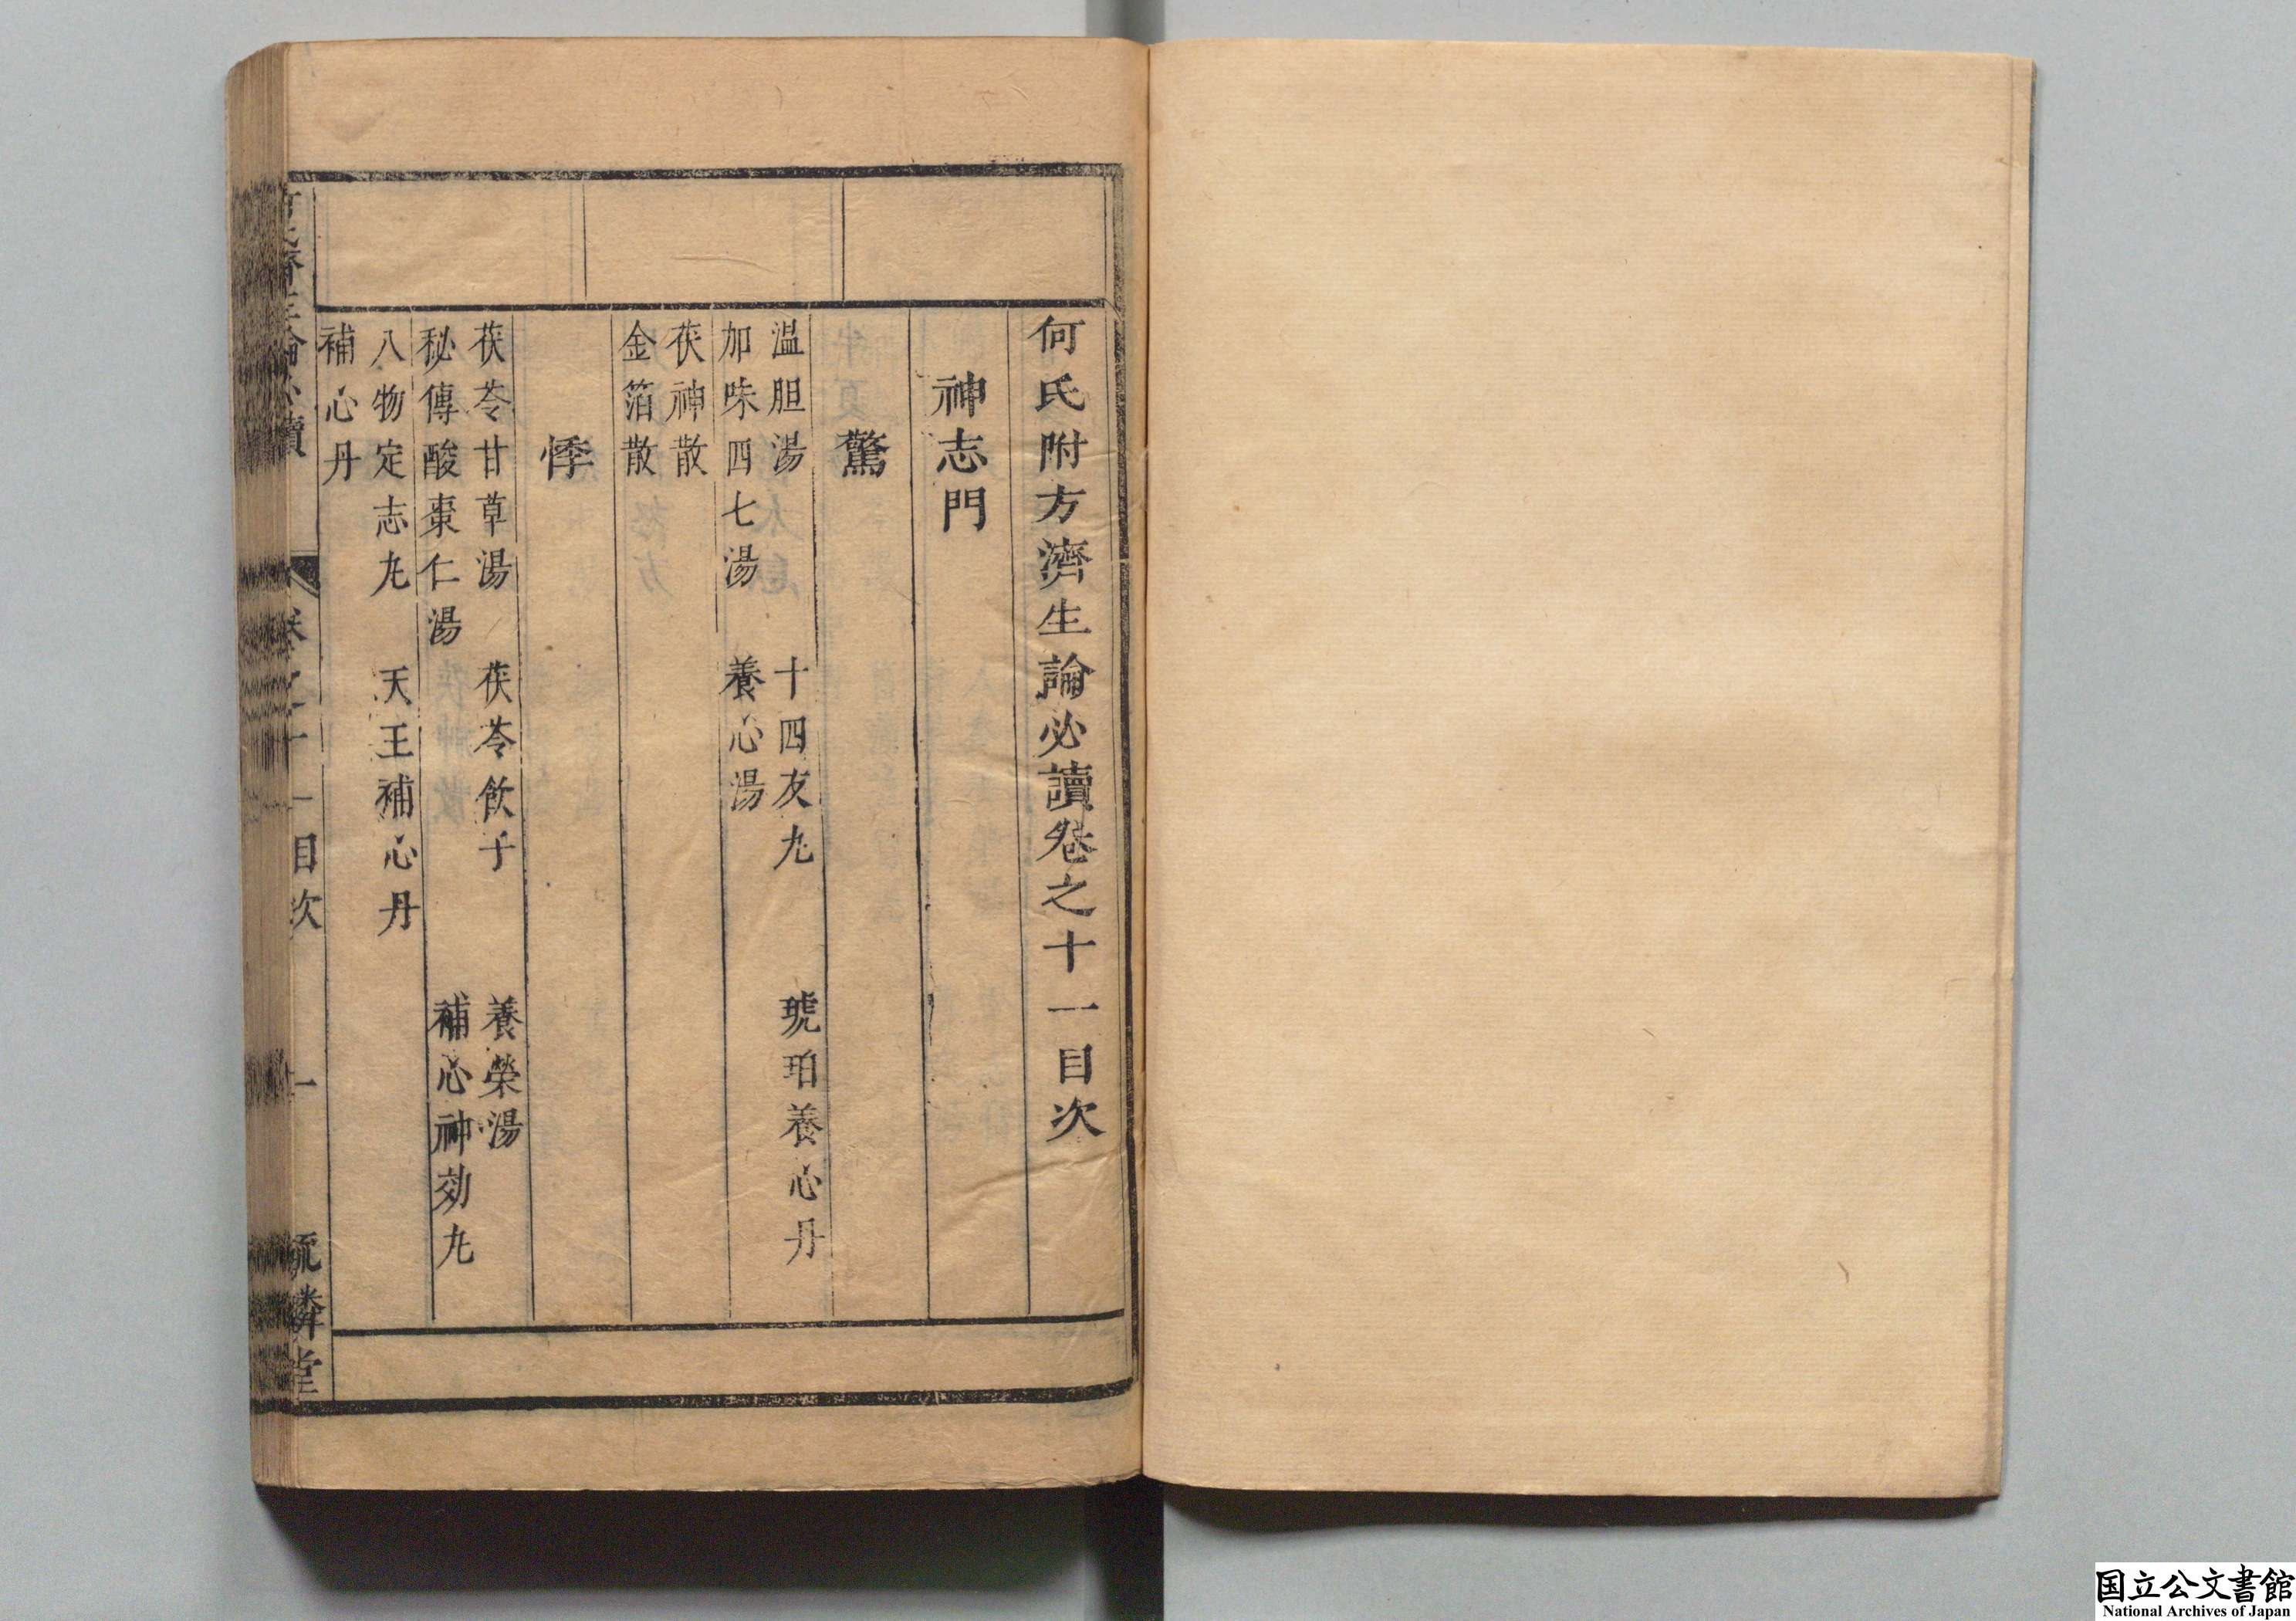 何氏附方濟生論必讀卷之十一目次
神志門
驚
温胆湯 十四友九 琥珀養心丹
加味四七湯 養心湯
茯神散
金箔散
悸
茯苓甘草湯 茯苓飲子 養榮湯
秘傳酸棗仁湯 補心神効九
八物定志九 天王補心丹
補心丹
濟生論必讀 卷之十一 目次 一 毓麟堂
国立公文書館
National Archives of Japan